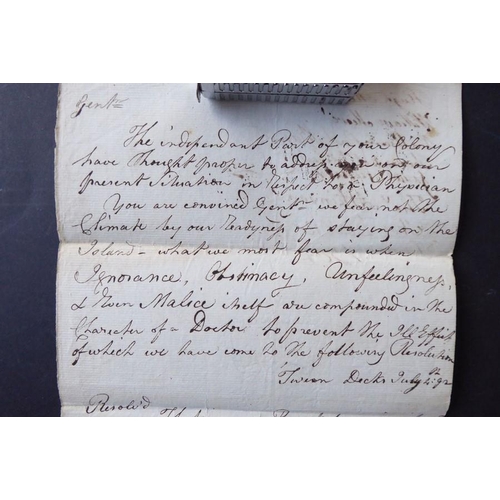 Gentn
The independant Part of your Colony
have thought proper to address you on our
present Situation in Respect to a Physician
You are convinced Gentn we fear not the
Climate by our Readyness of staying on the
Island - what we most fear is when
Ignorance, Obstinacy, Unfeelingness,
& Even Malice itself are compounded in the
Character of a Doctor to prevent the Ill Effects
of which we have come to the following Resolution
Tween Decks July 4th 92
Resolv'd